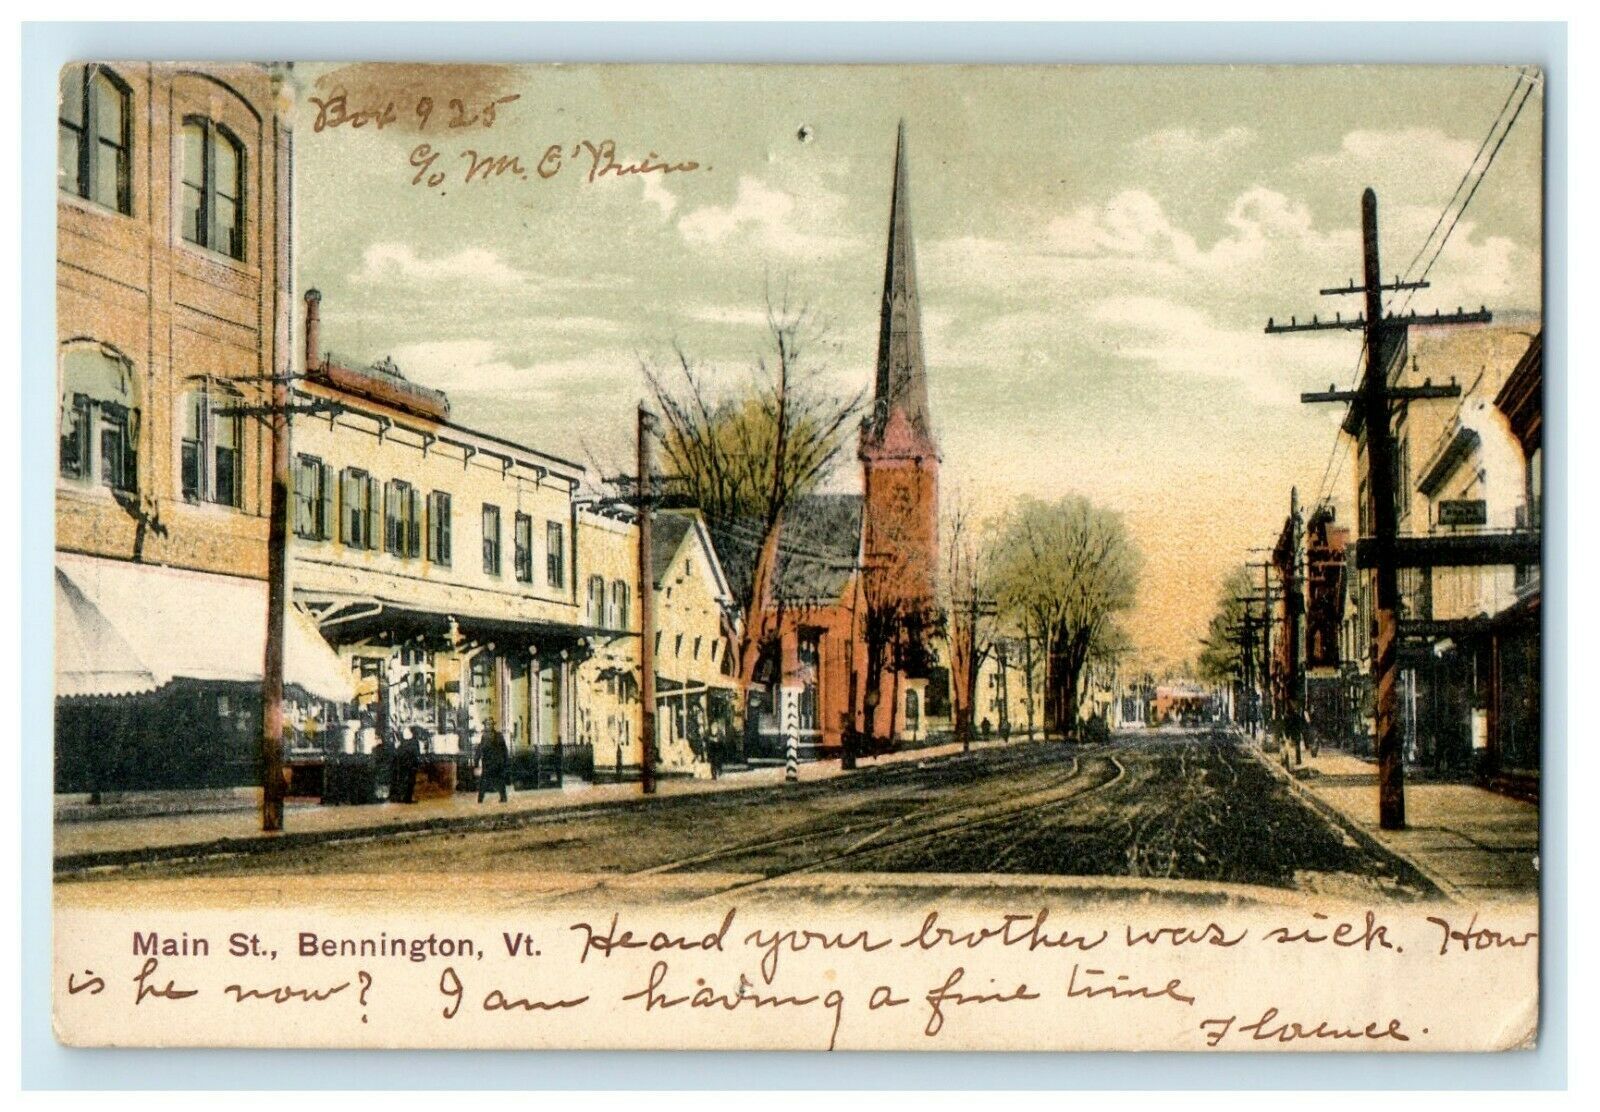 Box 925
c/o M. O'Brien.
Main St., Bennington, Vt. Heard your brother was sick. How
is he now? I am having a fine time
Florence.